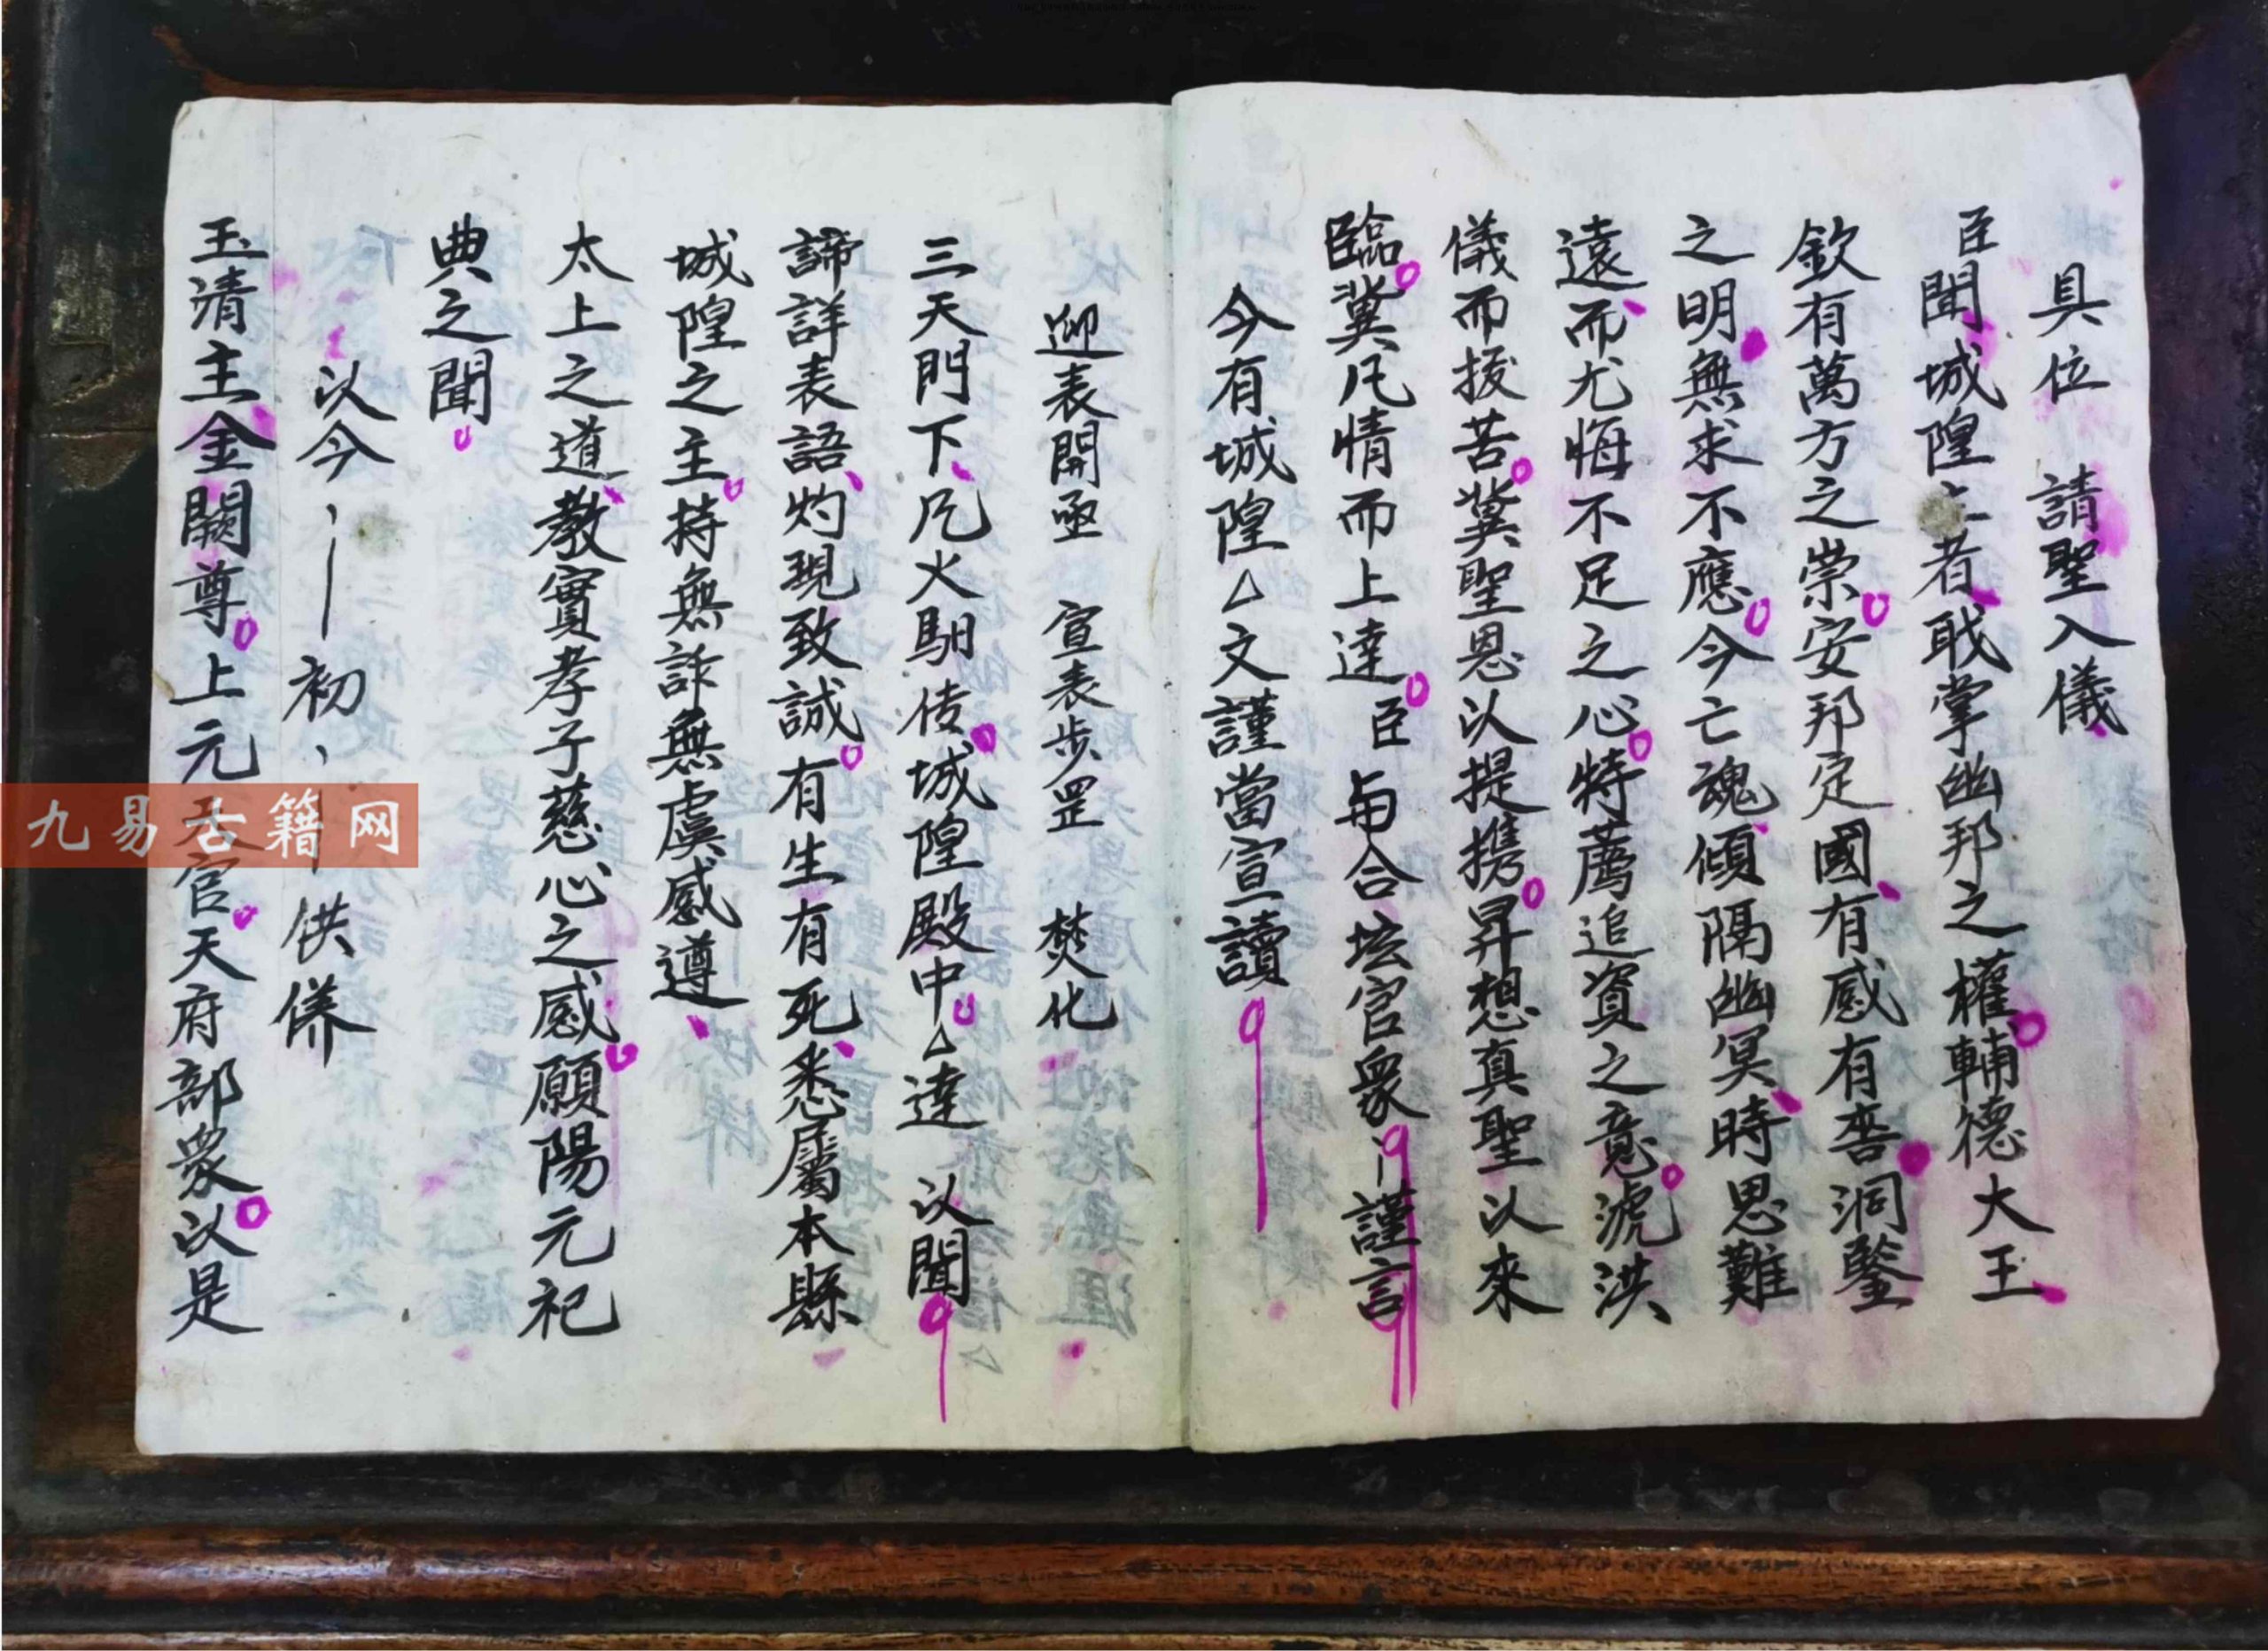 具位　請聖入儀
臣聞城隍之者戢掌幽邦之權輔德大王
欽有萬方之崇安邦定國有感有啚洞鑒
之明無求不應今亡魂傾隔幽冥時思難
遠而尤悔不足之心特薦追資之意淲洪
儀而拔苦兾聖恩以提携昇想真聖以來
臨兾凡情而上達臣與合坛官衆〻謹言
今有城隍△文謹當宣讀
迎表開函　宣表步罡　焚化
三天門下凡火馹传城隍殿中△達　以聞
諦詳表語灼現致誠有生有死悉屬本縣
城隍之主持無詐無虞感遵
太上之道教實孝子慈心之感願陽元祀
典之聞
以今、｜初、｜供養
玉清主金闕尊上元天官天府部衆以是
九易古籍网